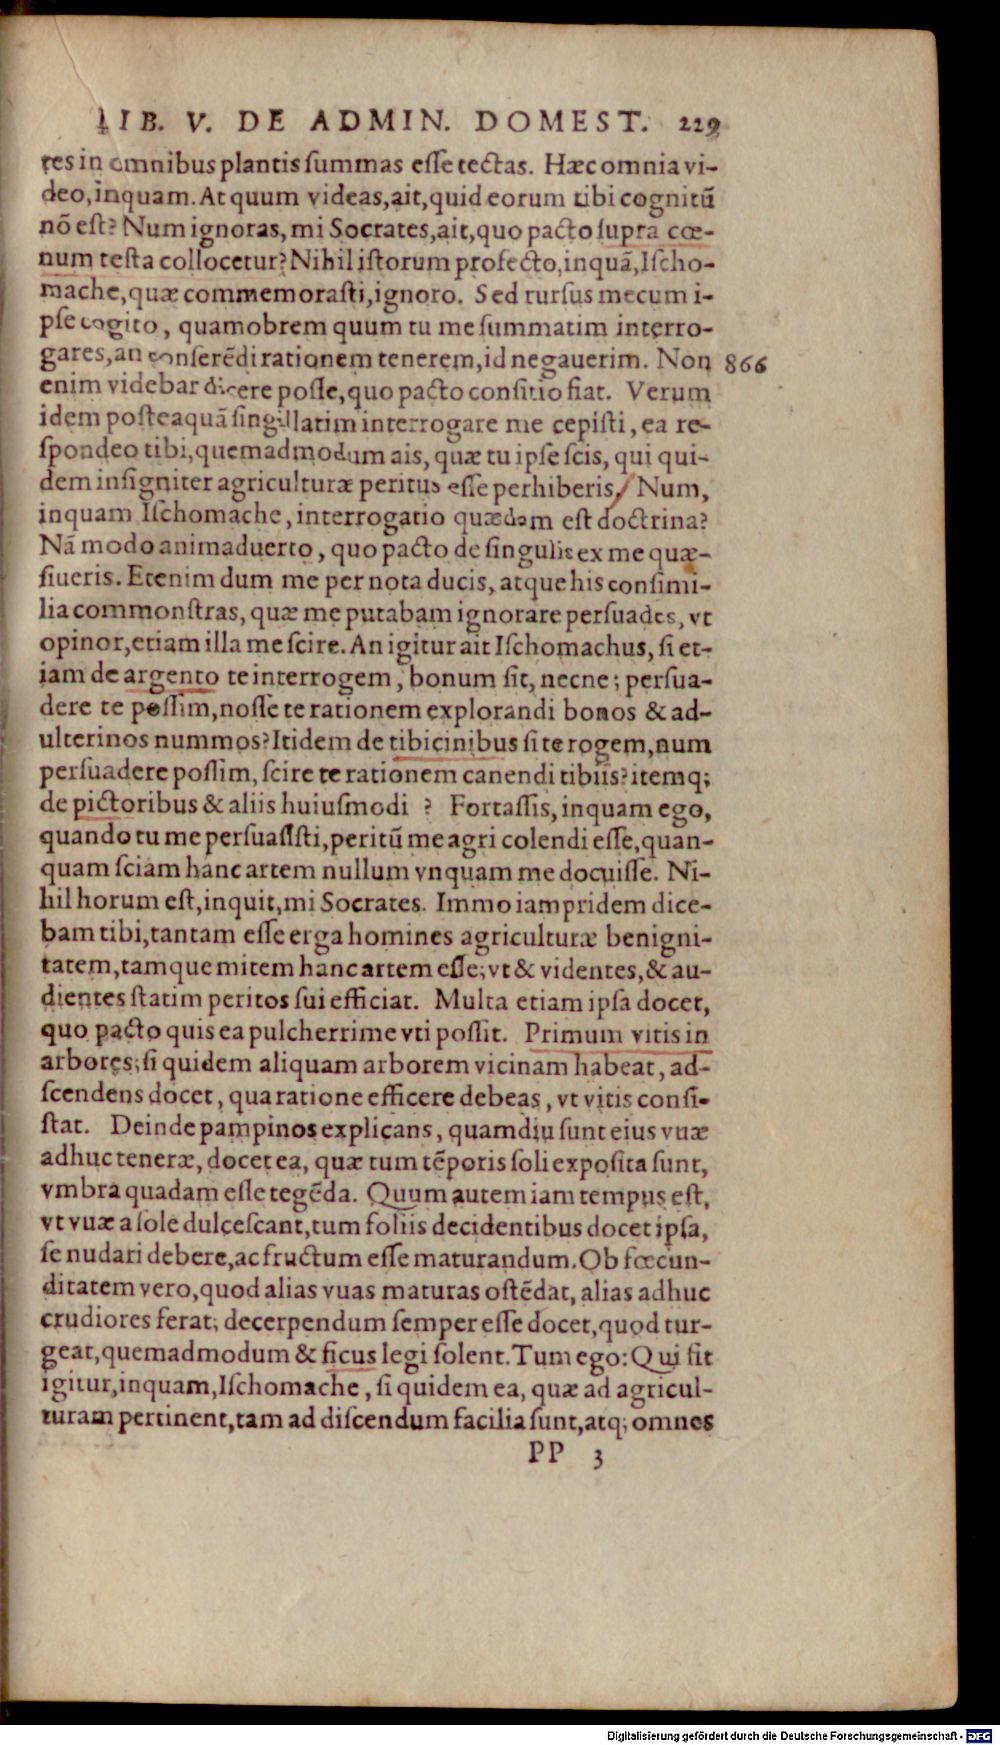 LIB. V. DE ADMIN. DOMEST. 229
tes in omnibus plantis summas esse tectas. Hæc omnia vi-
deo, inquam. At quum videas, ait, quid eorum tibi cognitũ
nõ est? Num ignoras, mi Socrates, ait, quo pacto supra cœ-
num testa collocetur? Nihil istorum profecto, inquã, Ischo-
mache, quæ commemorasti, ignoro. Sed rursus mecum i-
pse cogito, quamobrem quum tu me summatim interro-
gares, an conserẽdi rationem tenerem, id negauerim. Non 866
enim videbar dicere posse, quo pacto consitio fiat. Verum
idem posteaquã singillatim interrogare me cepisti, ea re-
spondeo tibi, quemadmodum ais, quæ tu ipse scis, qui qui-
dem insigniter agriculturæ peritus esse perhiberis, Num,
inquam Ischomache, interrogatio quædam est doctrina?
Nã modo animaduerto, quo pacto de singulis ex me quæ-
siueris. Etenim dum me per nota ducis, atque his consimi-
lia commonstras, quæ me putabam ignorare persuades, vt
opinor, etiam illa me scire. An igitur ait Ischomachus, si et-
iam de argento te interrogem, bonum sit, necne; persua-
dere te possim, nosse te rationem explorandi bonos & ad-
ulterinos nummos? Itidem de tibicinibus si te rogem, num
persuadere possim, scire te rationem canendi tibiis? itemq;
de pictoribus & aliis huiusmodi ? Fortassis, inquam ego,
quando tu me persuasisti, peritũ me agri colendi esse, quan-
quam sciam hanc artem nullum vnquam me docuisse. Ni-
hil horum est, inquit, mi Socrates. Immo iampridem dice-
bam tibi, tantam esse erga homines agriculturæ benigni-
tatem, tamque mitem hanc artem esse; vt & videntes, & au-
dientes statim peritos sui efficiat. Multa etiam ipsa docet,
quo pacto quis ea pulcherrime vti possit. Primum vitis in
arbores; si quidem aliquam arborem vicinam habeat, ad-
scendens docet, qua ratione efficere debeas, vt vitis consi-
stat. Deinde pampinos explicans, quamdiu sunt eius vuæ
adhuc teneræ, docet ea, quæ tum tẽporis soli exposita sunt,
vmbra quadam esse tegẽda. Quum autem iam tempus est,
vt vuæ a sole dulcescant, tum foliis decidentibus docet ipsa,
se nudari debere, ac fructum esse maturandum. Ob fœcun-
ditatem vero, quod alias vuas maturas ostẽdat, alias adhuc
crudiores ferat; decerpendum semper esse docet, quod tur-
geat, quemadmodum & ficus legi solent. Tum ego: Qui fit
igitur, inquam, Ischomache, si quidem ea, quæ ad agricul-
turam pertinent, tam ad discendum facilia sunt, atq; omnes
PP 3
Digitalisierung gefördert durch die Deutsche Forschungsgemeinschaft - DFG